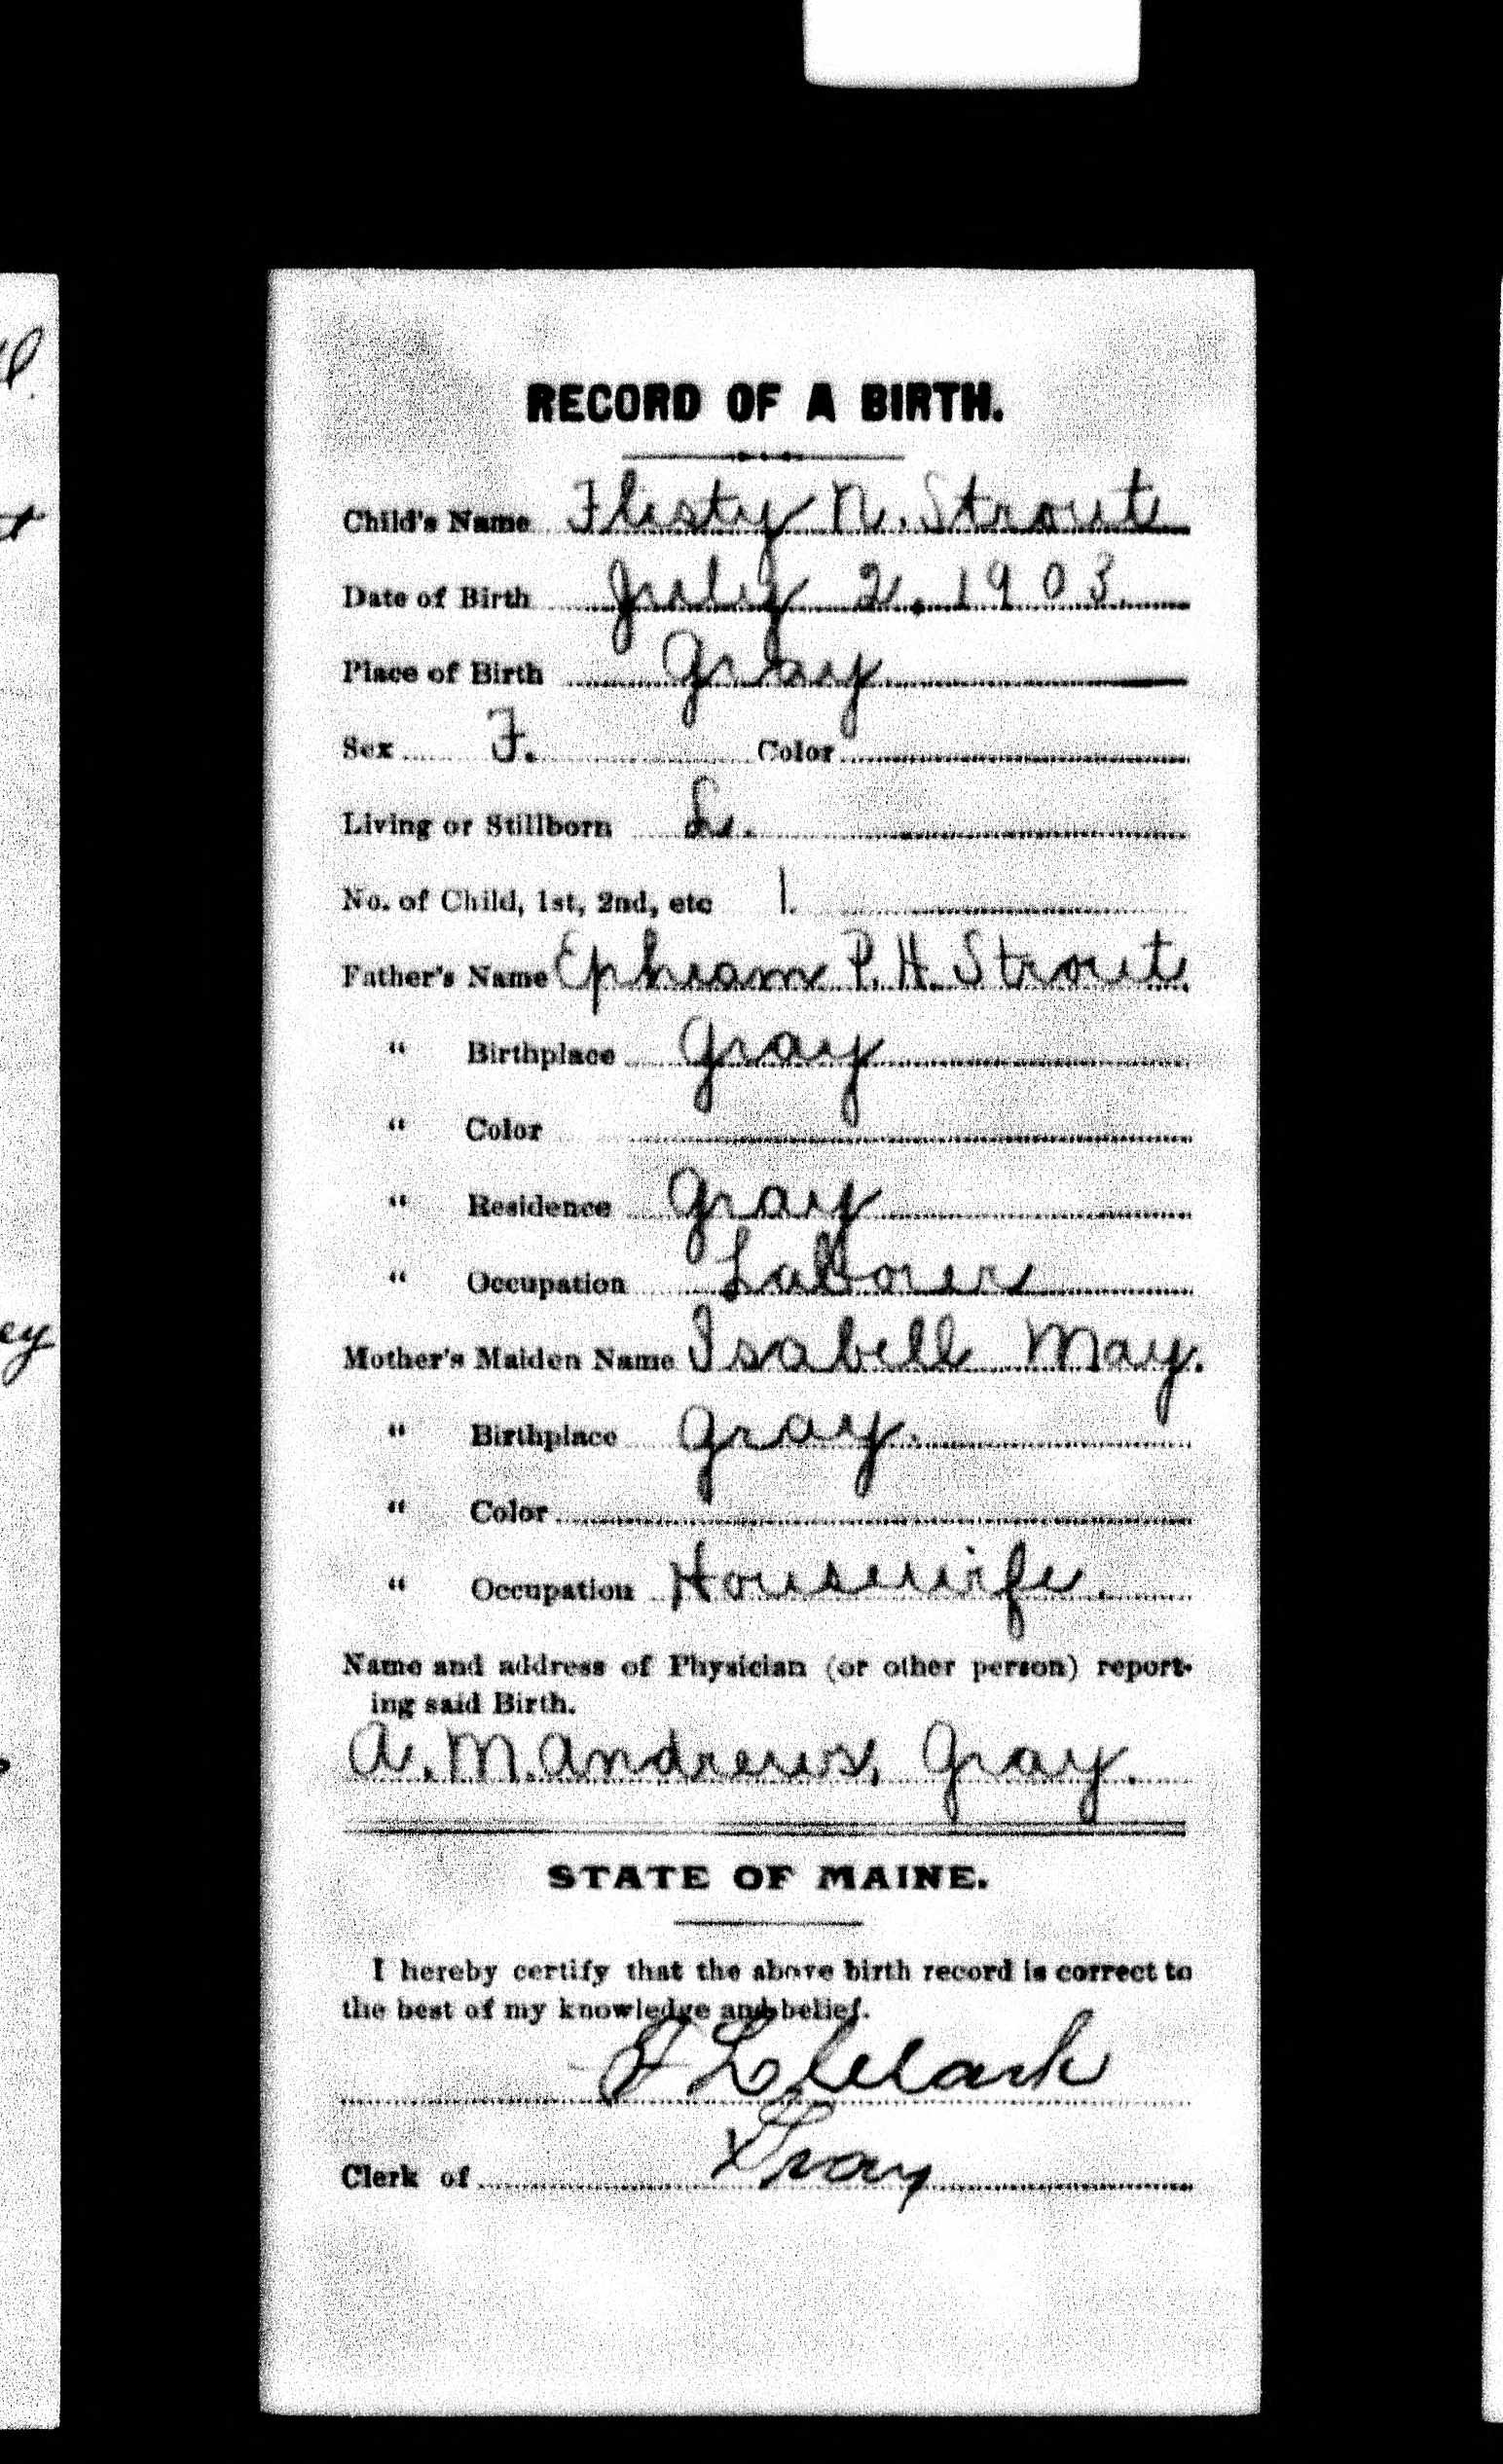 RECORD OF A BIRTH.
Child's Name Flisty N. Strout
Date of Birth July 2. 1903
Place of Birth Gray
Sex F. Color
Living or Stillborn L.
No. of Child, 1st, 2nd, etc 1.
Father's Name Ephram P. H. Strout
" Birthplace Gray
" Color
" Residence Gray
" Occupation Laborer
Mother's Maiden Name Isabell May.
" Birthplace Gray.
" Color
" Occupation Housewife.
Name and address of Physician (or other person) report-
ing said Birth.
A. M. Andrews, Gray.
STATE OF MAINE.
I hereby certify that the above birth record is correct to
the best of my knowledge and belief.
L Clark
Clerk of Gray